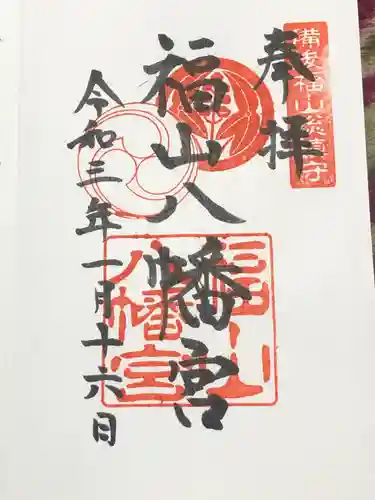 備後福山総鎮守
奉拝
福山八幡宮
令和三年一月十六日
福山
八幡宮